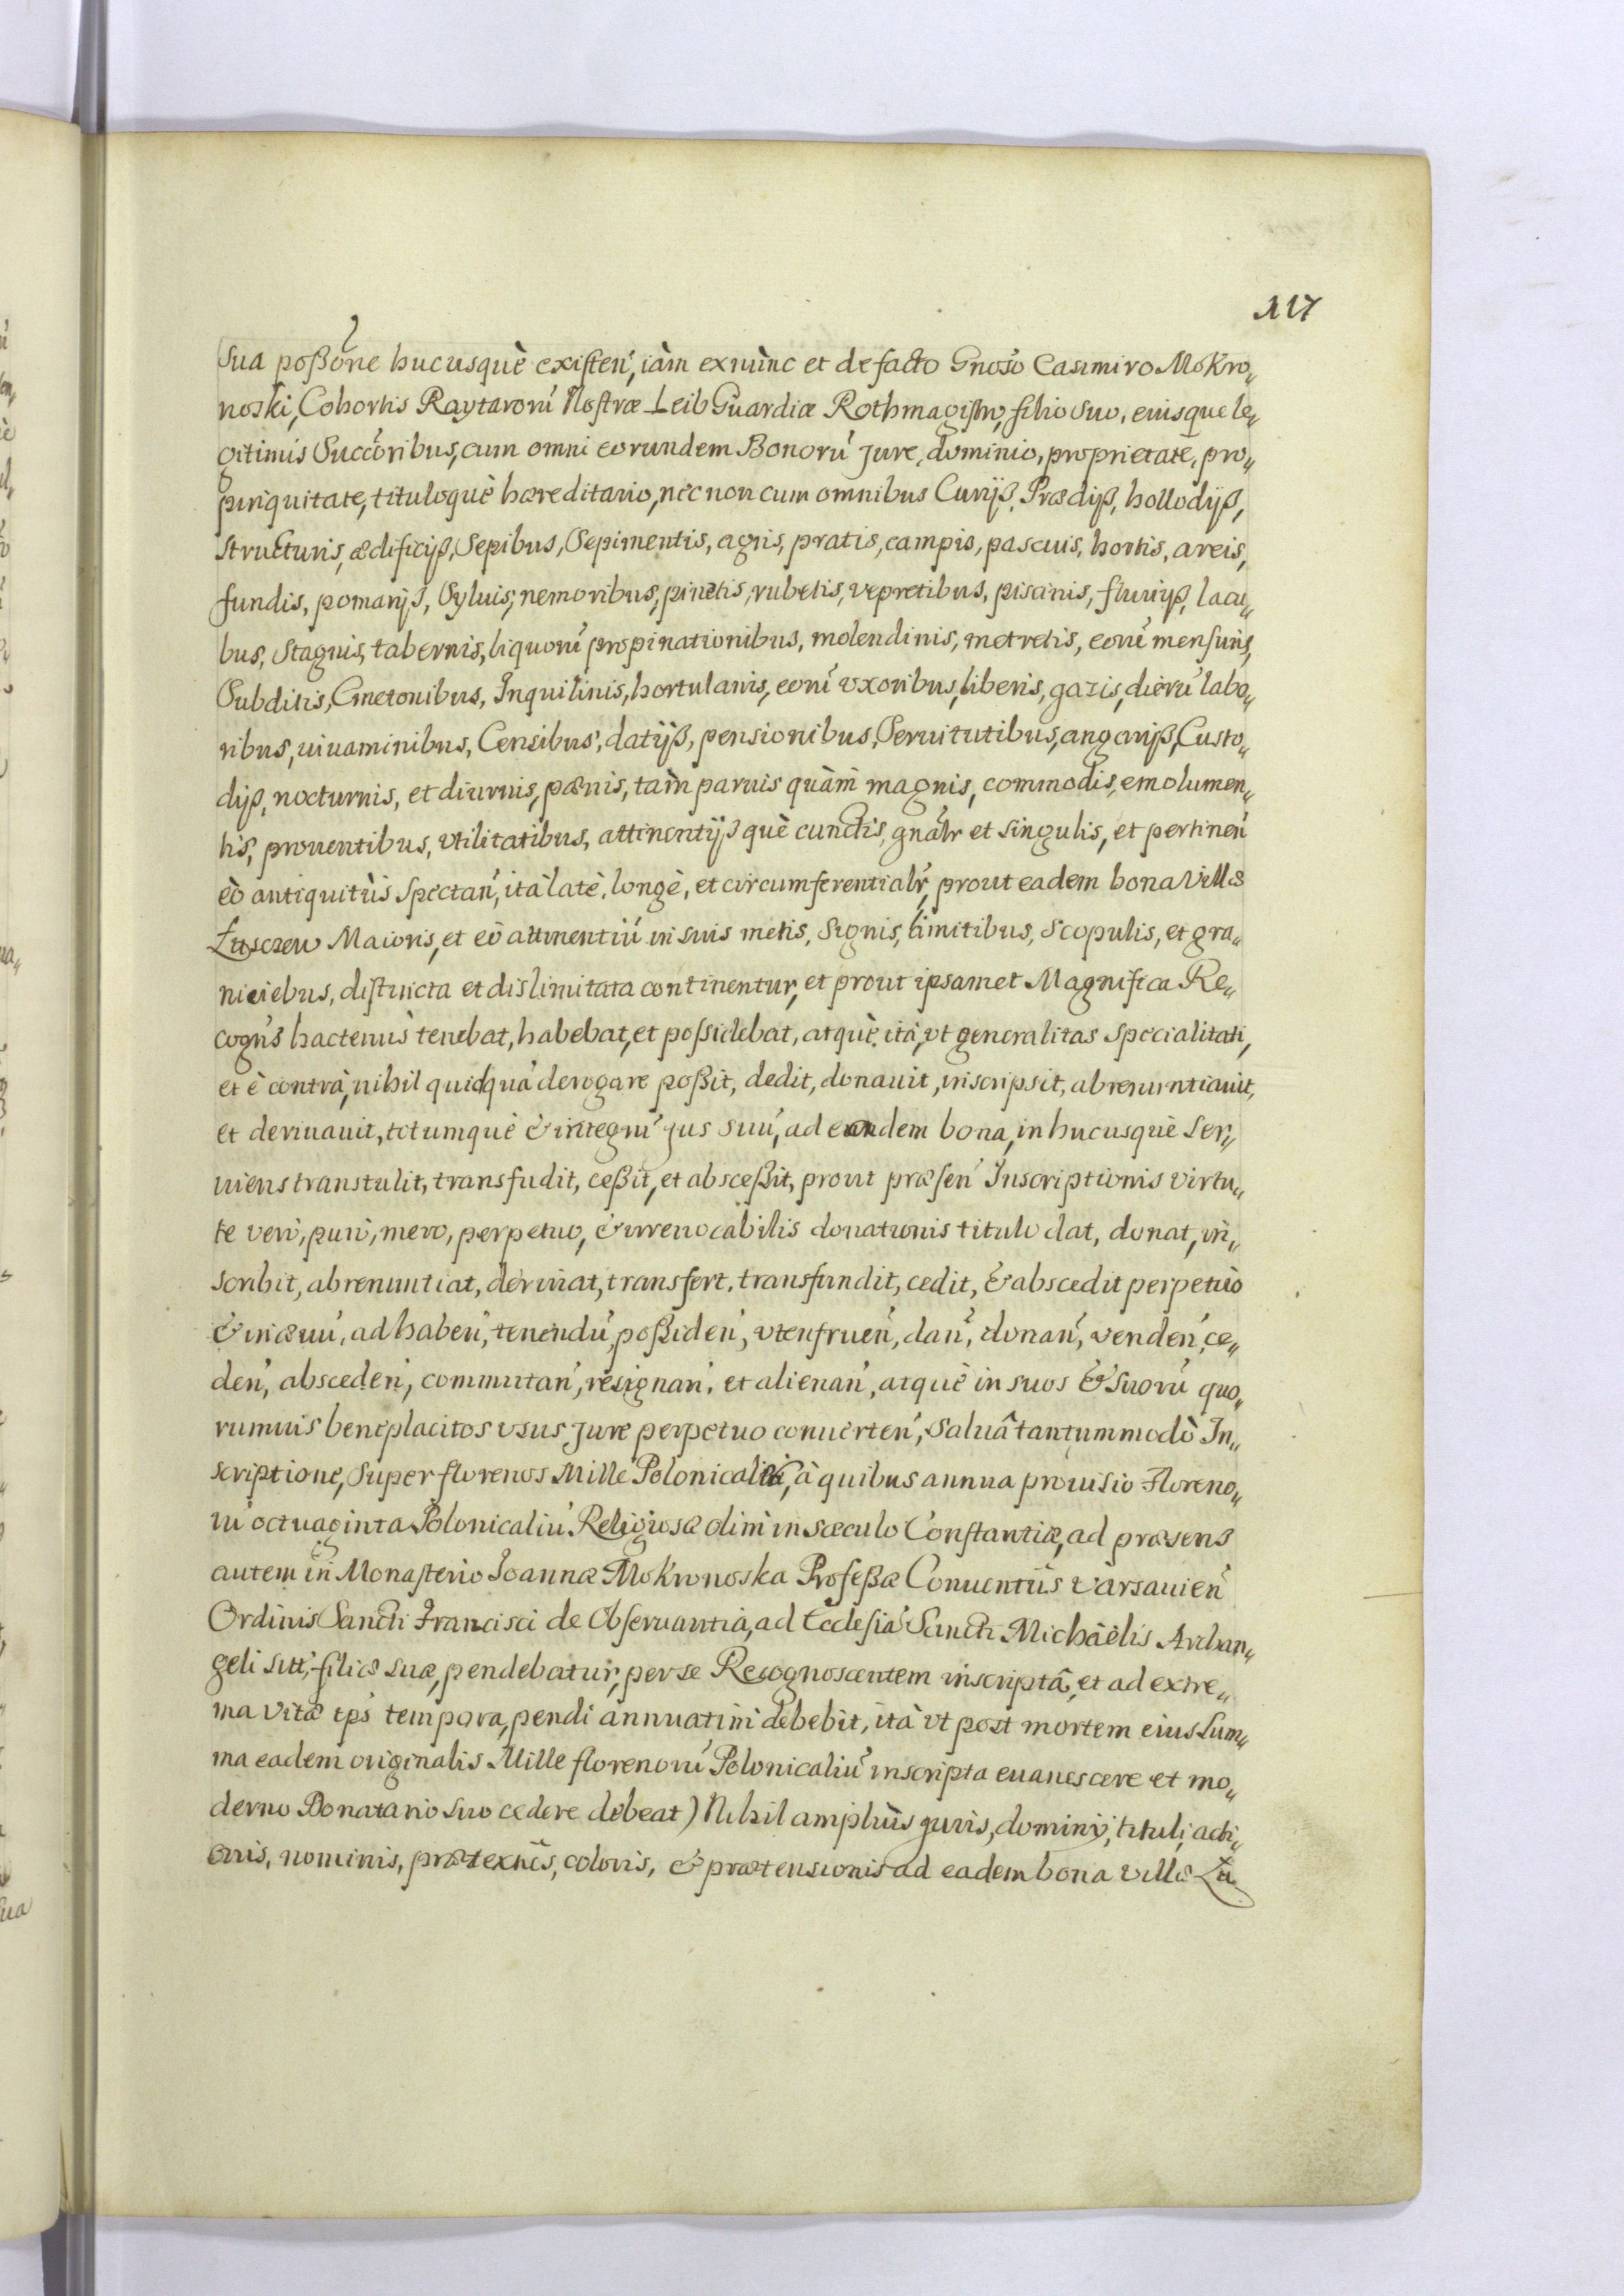 117
Sua poßone hucusquè existen, iàm exnùnc et defacto Gnoso Casimiro Mokro„
noski, Cohortis Raytaroru Nostræ Leib Guardiæ Rothmagistro, filio suo, eiusque le„
gitimis Succoribus, cum omni eorundem Bonoru Jure, dominio, proprietate, pro„
pinquitate, tituloquè hæreditario, nec non cum omnibus Curijß, Prædijß, hollodijß,
Structuris, ædificijß, Sepibus, Sepimentis, agris, pratis, campis, pascuis, hortis, areis,
fundis, pomarijß, Syluis, nemoribus, pinetis, rubetis, vepretibus, piscinis, fluuijß, lacu„
bus, Stagnis, tabernis, liquoru propinationibus, molendinis, metretis, eoru mensuris,
Subditis, Cmetonibus, Inquilinis, hortulanis, eoru vxoribus, liberis, gazis, dieru labo„
ribus, iuuaminibus, Censibus, datijß, pensionibus, Seruitutibus, angarijß, Custo„
dijß, nocturnis, et diurnis, pænis, tàm paruis quàm magnis, commodis, emolumen„
tis, prouentibus, vtilitatibus, attinentijß què cunctis, gnalr et singulis, et pertinen
eò antiquitùs spectan, ità latè, longè, et circumferentialr, prout eadem bona Villæ
Łuszczew Maioris, et eò attinentiu in suis metis, Signis, limitibus, Scopulis, et gra„
niciebus, distincta et dislimitata continentur, et prout ipsamet Magnifica Re„
cogns hactenùs tenebat, habebat, et possidebat, atquè ità, vt generalitas Specialitati,
et è contrà, nihil quidqua derogare poßit, dedit, donauit, inscripsit, abrenuntiauit,
et deriuauit, totumquè & integru jus suu, ad eandem bona, in hucusquè Ser„
uiens transtulit, transfudit, ceßit, et absceßit, prout præsen Inscriptionis virtu„
te veri, puri, mero, perpetuo, & irreuocabilis donationis titulo dat, donat, in„
scribit, abrenuntiat, deriuat, transfert, transfundit, cedit, & abscedit perpetuò
& in æuu, ad haben, tenendu, poßiden, vtenfruen, dan, donan, venden, ce„
den, absceden, commutan, resignan, et alienan, atquè in suos & Suoru quo„
rumuis beneplacitos vsus Jure perpetuo conuerten, Saluâ tantummodò In„
scriptione, Super florenos Mille Polonicales, à quibus annua prouisio Floreno„
ru octuaginta Polonicaliu Religiosæ olim in sæculo Constantiæ, ad præsens
autem in Monasterio Joannæ Mokronoska Profeßæ Conuentûs Varsauien
Ordinis Sancti Francisci de Obseruantia, ad Ecclesia Sancti Michaëlis Archan„
geli sitt, filiæ suæ, pendebatur, per se Recognoscentem inscriptâ, et ad extre„
ma vitæ ips tempora, pendi annuatim debebit, ità vt post mortem eius Sum„
ma eadem originalis Mille florenoru Polonicaliu inscripta euanescere et mo„
derno Donatario suo cedere debeat) Nihil ampliùs juris, dominij, tituli, acti„
onis, nominis, prætextûs, coloris, & prætensionis ad eadem bona villæ Łu